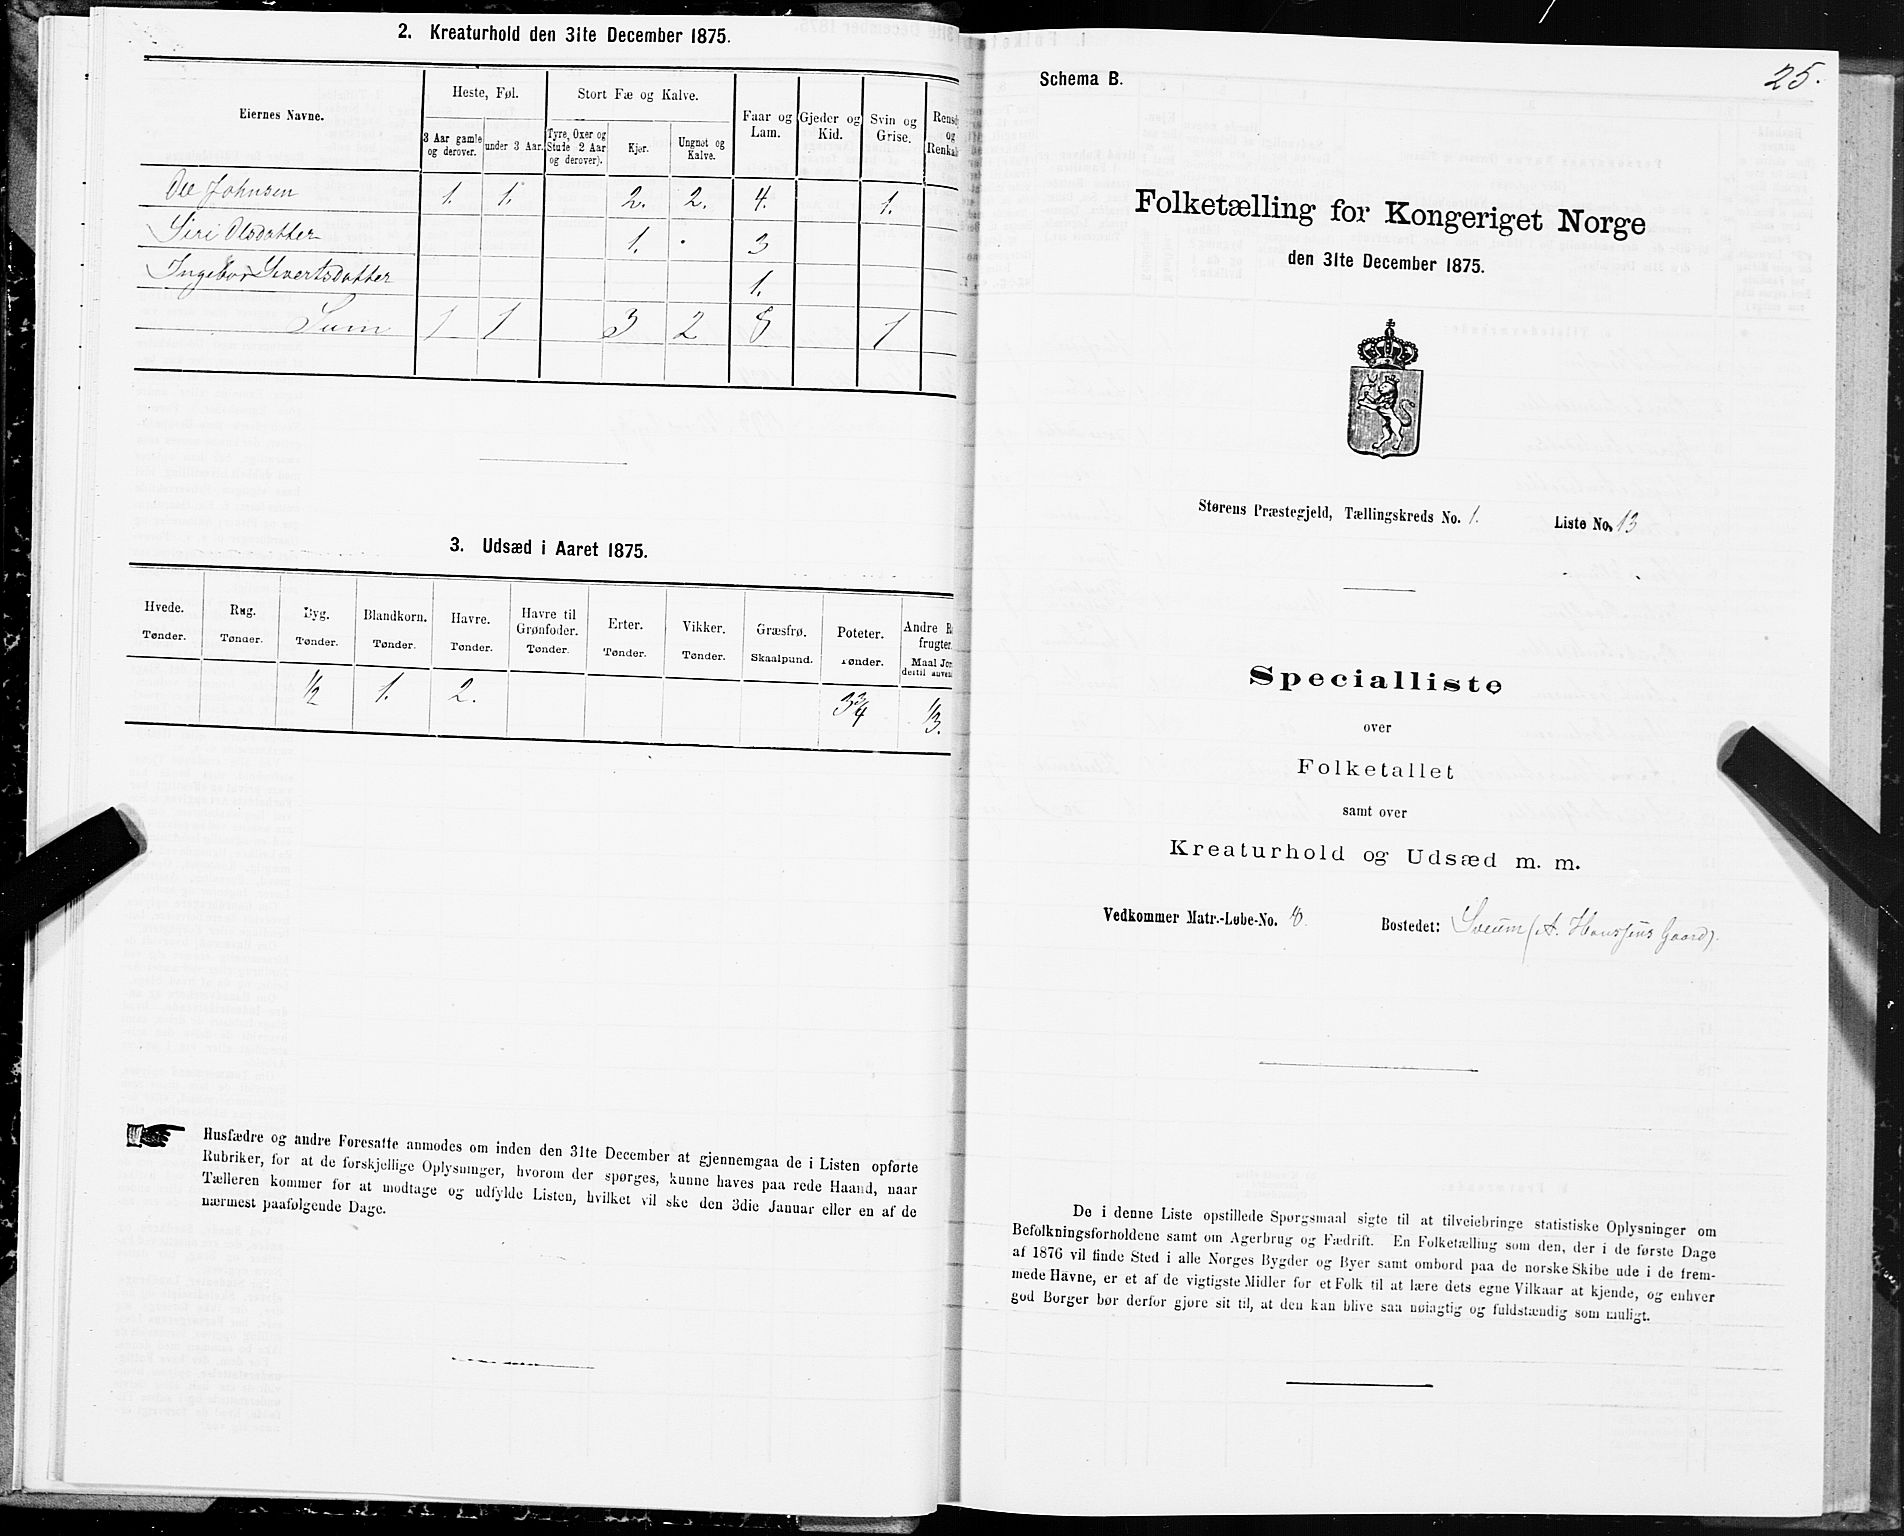 2. Kreaturhold den 31te December 1875.
Eiernes Navne.
Heste, Føl.
Stort Fæ og Kalve.
Faar og Lam.
Gjeder og Kid.
Svin og Grise.
3 Aar gamle og derover.
under 3 Aar.
Tyre, Oxer og Stude 2 Aar og derover).
Kjør.
Ungnøt og Kalve.
Ole Johnsen 1. 1. 2. 2. 4. 1.
Siri Olsdatter 1. 3
Ingebor Sivertsdatter 1.
Sum 1 1 3 2 8 1
3. Udsæd i Aaret 1875.
Hvede. Rug. Byg. Blandkorn. Havre. Havre til Grønfoder. Erter. Vikker. Græsfrø. Poteter. Andre
Tønder. Tønder. Tønder. Tønder. Tønder. Tønder. Tønder. Tønder. Skaalpund. Tønder. Maal
1/2 1. 2. 3 3/4 1/3.
Husfædre og andre Foresatte anmodes om inden den 31te December at gjennemgaa de i Listen opførte
Rubriker, for at de forskjellige Oplysninger, hvorom der spørges, kunne haves paa rede Haand, naar
Tælleren kommer for at modtage og udfylde Listen, hvilket vil ske den 3die Januar eller en af de
nærmest paafølgende Dage.
Schema B.
25.
Folketælling for Kongeriget Norge
den 31te December 1875.
Størens Præstegjeld, Tællingskreds No. 1. Liste No. 13
Specialliste
over
Folketallet
samt over
Kreaturhold og Udsæd m. m.
Vedkommer Matr.-Løbe-No. 8. Bostedet: Sveum (A. Hanssens Gaard).
De i denne Liste opstillede Spørgsmaal sigte til at tilveiebringe statistiske Oplysninger om
Befolkningsforholdene samt om Agerbrug og Fædrift. En Folketælling som den, der i de første Dage
af 1876 vil finde Sted i alle Norges Bygder og Byer samt ombord paa de norske Skibe ude i de frem-
mede Havne, er et af de vigtigste Midler for et Folk til at lære dets egne Vilkaar at kjende, og enhver
god Borger bør derfor gjøre sit til, at den kan blive saa nøiagtig og fuldstændig som muligt.